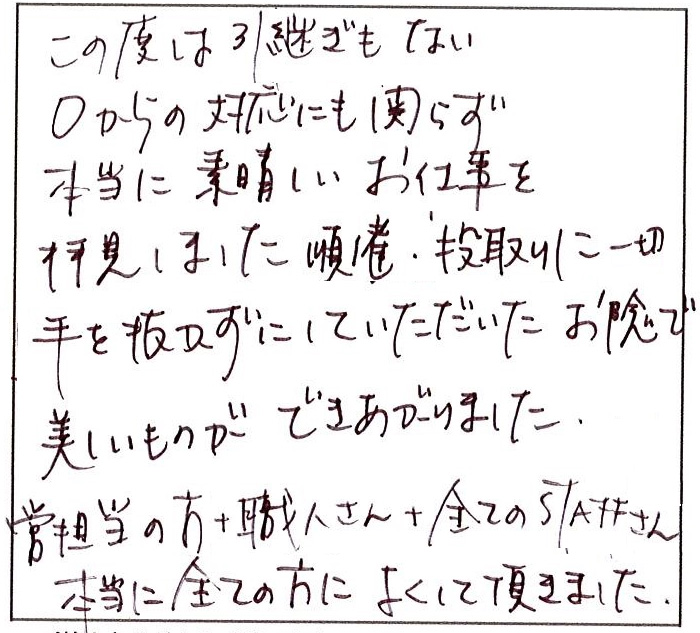 この度は引継ぎもない
0からの対応にも関らず
本当に素晴しいお仕事を
拝見しました 順催・段取りに一切
手を抜かずにしていただいた お陰で
美しいものが できあがりました.
営担当の方+職人さん+全てのSTAFFさん
本当に全ての方に よくして頂きました.